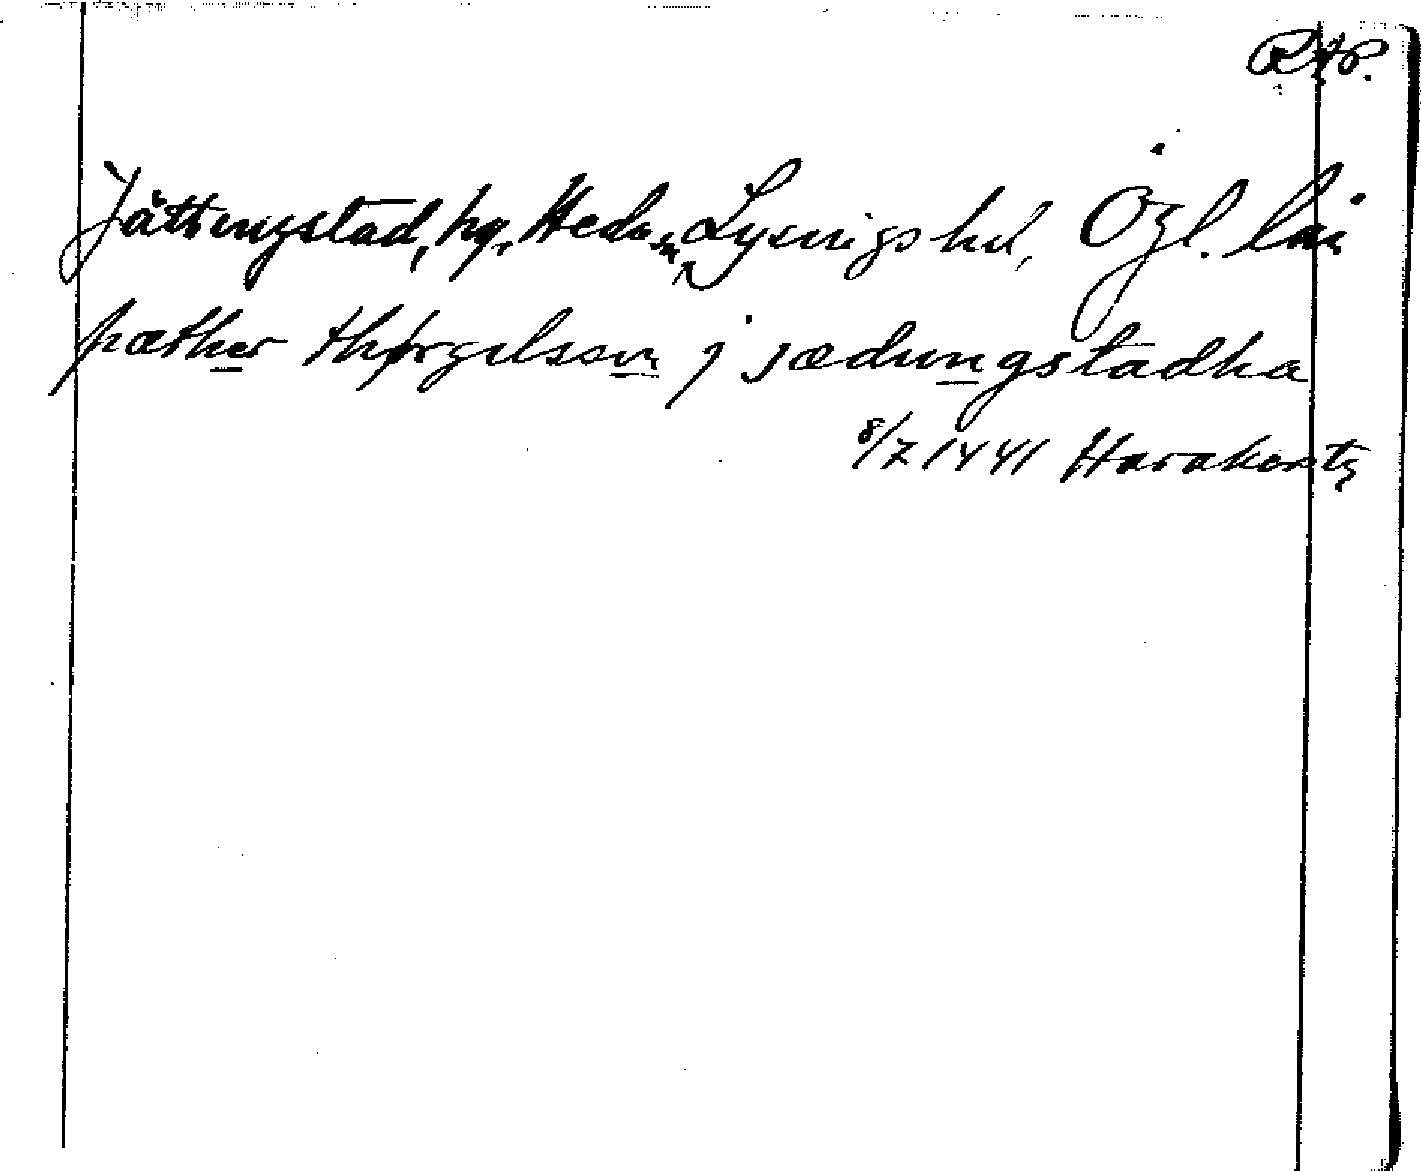 RAP.
Jättingstad, hg, Heda sn, Lysings hd, Ögl. län
pæther thørgilsson j jædungstadha
8/7 1441 Harakertz